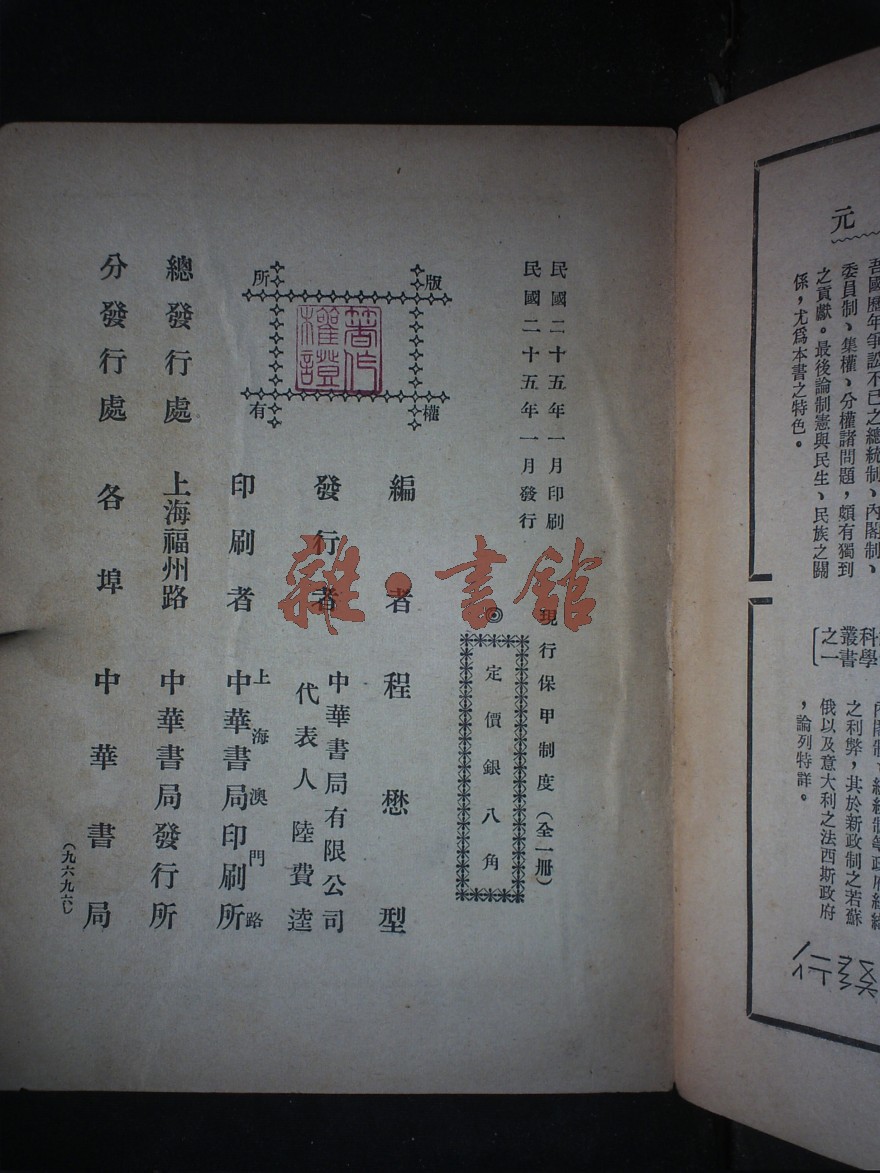 元
吾國歷年爭訟不已之總統制、內閣制、
委員制、集權、分權諸問題，頗有獨到
之貢獻。最後論制憲與民生、民族之關
係，尤爲本書之特色。
科學
叢書
之一
之利弊，其於新政制之若蘇
俄以及意大利之法西斯政府
，論列特詳。
發行
民國二十五年一月印刷
民國二十五年一月發行
現行保甲制度（全一冊）
◎定價銀八角
版權所有
著作權證
編者 程懋型
發行者 中華書局有限公司
代表人 陸費逵
印刷者 上海澳門路
中華書局印刷所
總發行處 上海福州路 中華書局發行所
分發行處 各埠 中華書局
（九六九六）
雜·書館